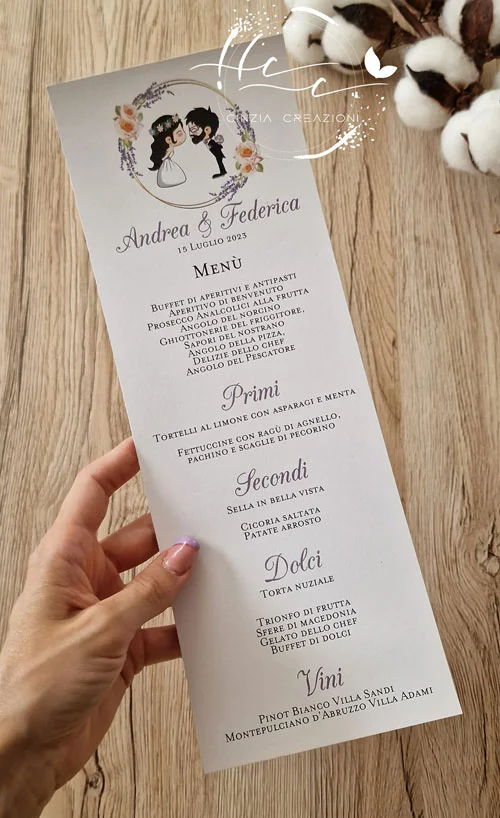 CINZIA CREAZIONI
Andrea & Federica
15 Luglio 2023
Menù
Buffet di aperitivi e antipasti
Aperitivo di benvenuto
Prosecco Analcolici alla frutta
Angolo del norcino
Ghiottonerie del friggitore,
Sapori del nostrano
Angolo della pizza,
Delizie dello chef
Angolo del Pescatore
Primi
Tortelli al limone con asparagi e menta
Fettuccine con ragù di agnello,
pachino e scaglie di pecorino
Secondi
Sella in bella vista
Cicoria saltata
Patate arrosto
Dolci
Torta nuziale
Trionfo di frutta
Sfere di macedonia
Gelato dello chef
Buffet di dolci
Vini
Pinot Bianco Villa Sandi
Montepulciano d'Abruzzo Villa Adami